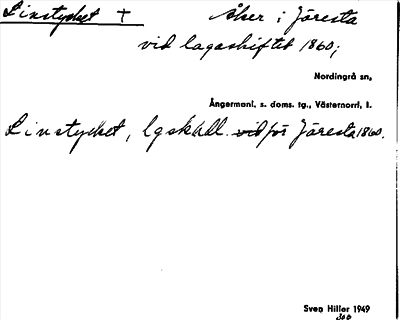 Linstycket † åker i Järesta
vid lagaskiftet 1860;
Nordingrå sn,
Ångermanl. s. doms. tg., Västernorrl. l.
Linstycket, lgskhdl. vid för Järesta 1860.
Sven Hiller 1949